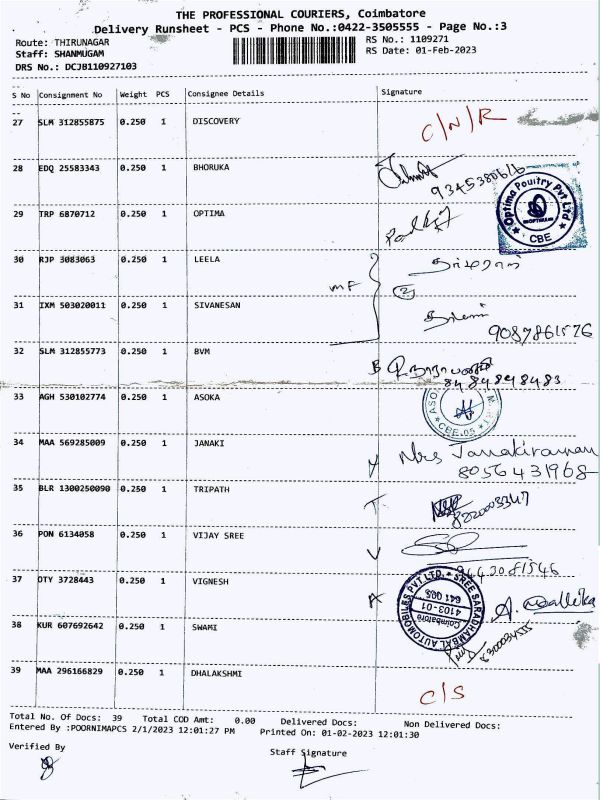 THE PROFESSIONAL COURIERS, Coimbatore
Delivery Runsheet - PCS - Phone No.:0422-3505555 - Page No.:3
Route: THIRUNAGAR RS No.: 1109271
Staff: SHANMUGAM RS Date: 01-Feb-2023
DRS No.: DCJB110927103
S No Consignment No Weight PCS Consignee Details Signature
27 SLM 312855875 0.250 1 DISCOVERY C/N/R
28 EDQ 25583343 0.250 1 BHORUKA
9345380616
29 TRP 6870712 0.250 1 OPTIMA
Optima Poultry Pvt Ltd
CBE
30 RJP 3083063 0.250 1 LEELA
MF
2
31 IXM 503020011 0.250 1 SIVANESAN
9087861576
32 SLM 312855773 0.250 1 BVM
8484848483
33 AGH 530102774 0.250 1 ASOKA
CBE-05
34 MAA 569285009 0.250 1 JANAKI Mrs Janakiraman
8056431968
35 BLR 1300250090 0.250 1 TRIPATH
8220003347
36 PON 6134058 0.250 1 VIJAY SREE
9443081546
37 OTY 3728443 0.250 1 VIGNESH
SREE SARADHAMBAL AUTOMOBILES PVT LTD.
4103-01
Coimbatore
38 KUR 607692642 0.250 1 SWAMI
39 MAA 296166829 0.250 1 DHALAKSHMI C/S
Total No. Of Docs: 39 Total COD Amt: 0.00 Delivered Docs: Non Delivered Docs:
Entered By :POORNIMAPCS 2/1/2023 12:01:27 PM Printed On: 01-02-2023 12:01:30
Verified By Staff Signature